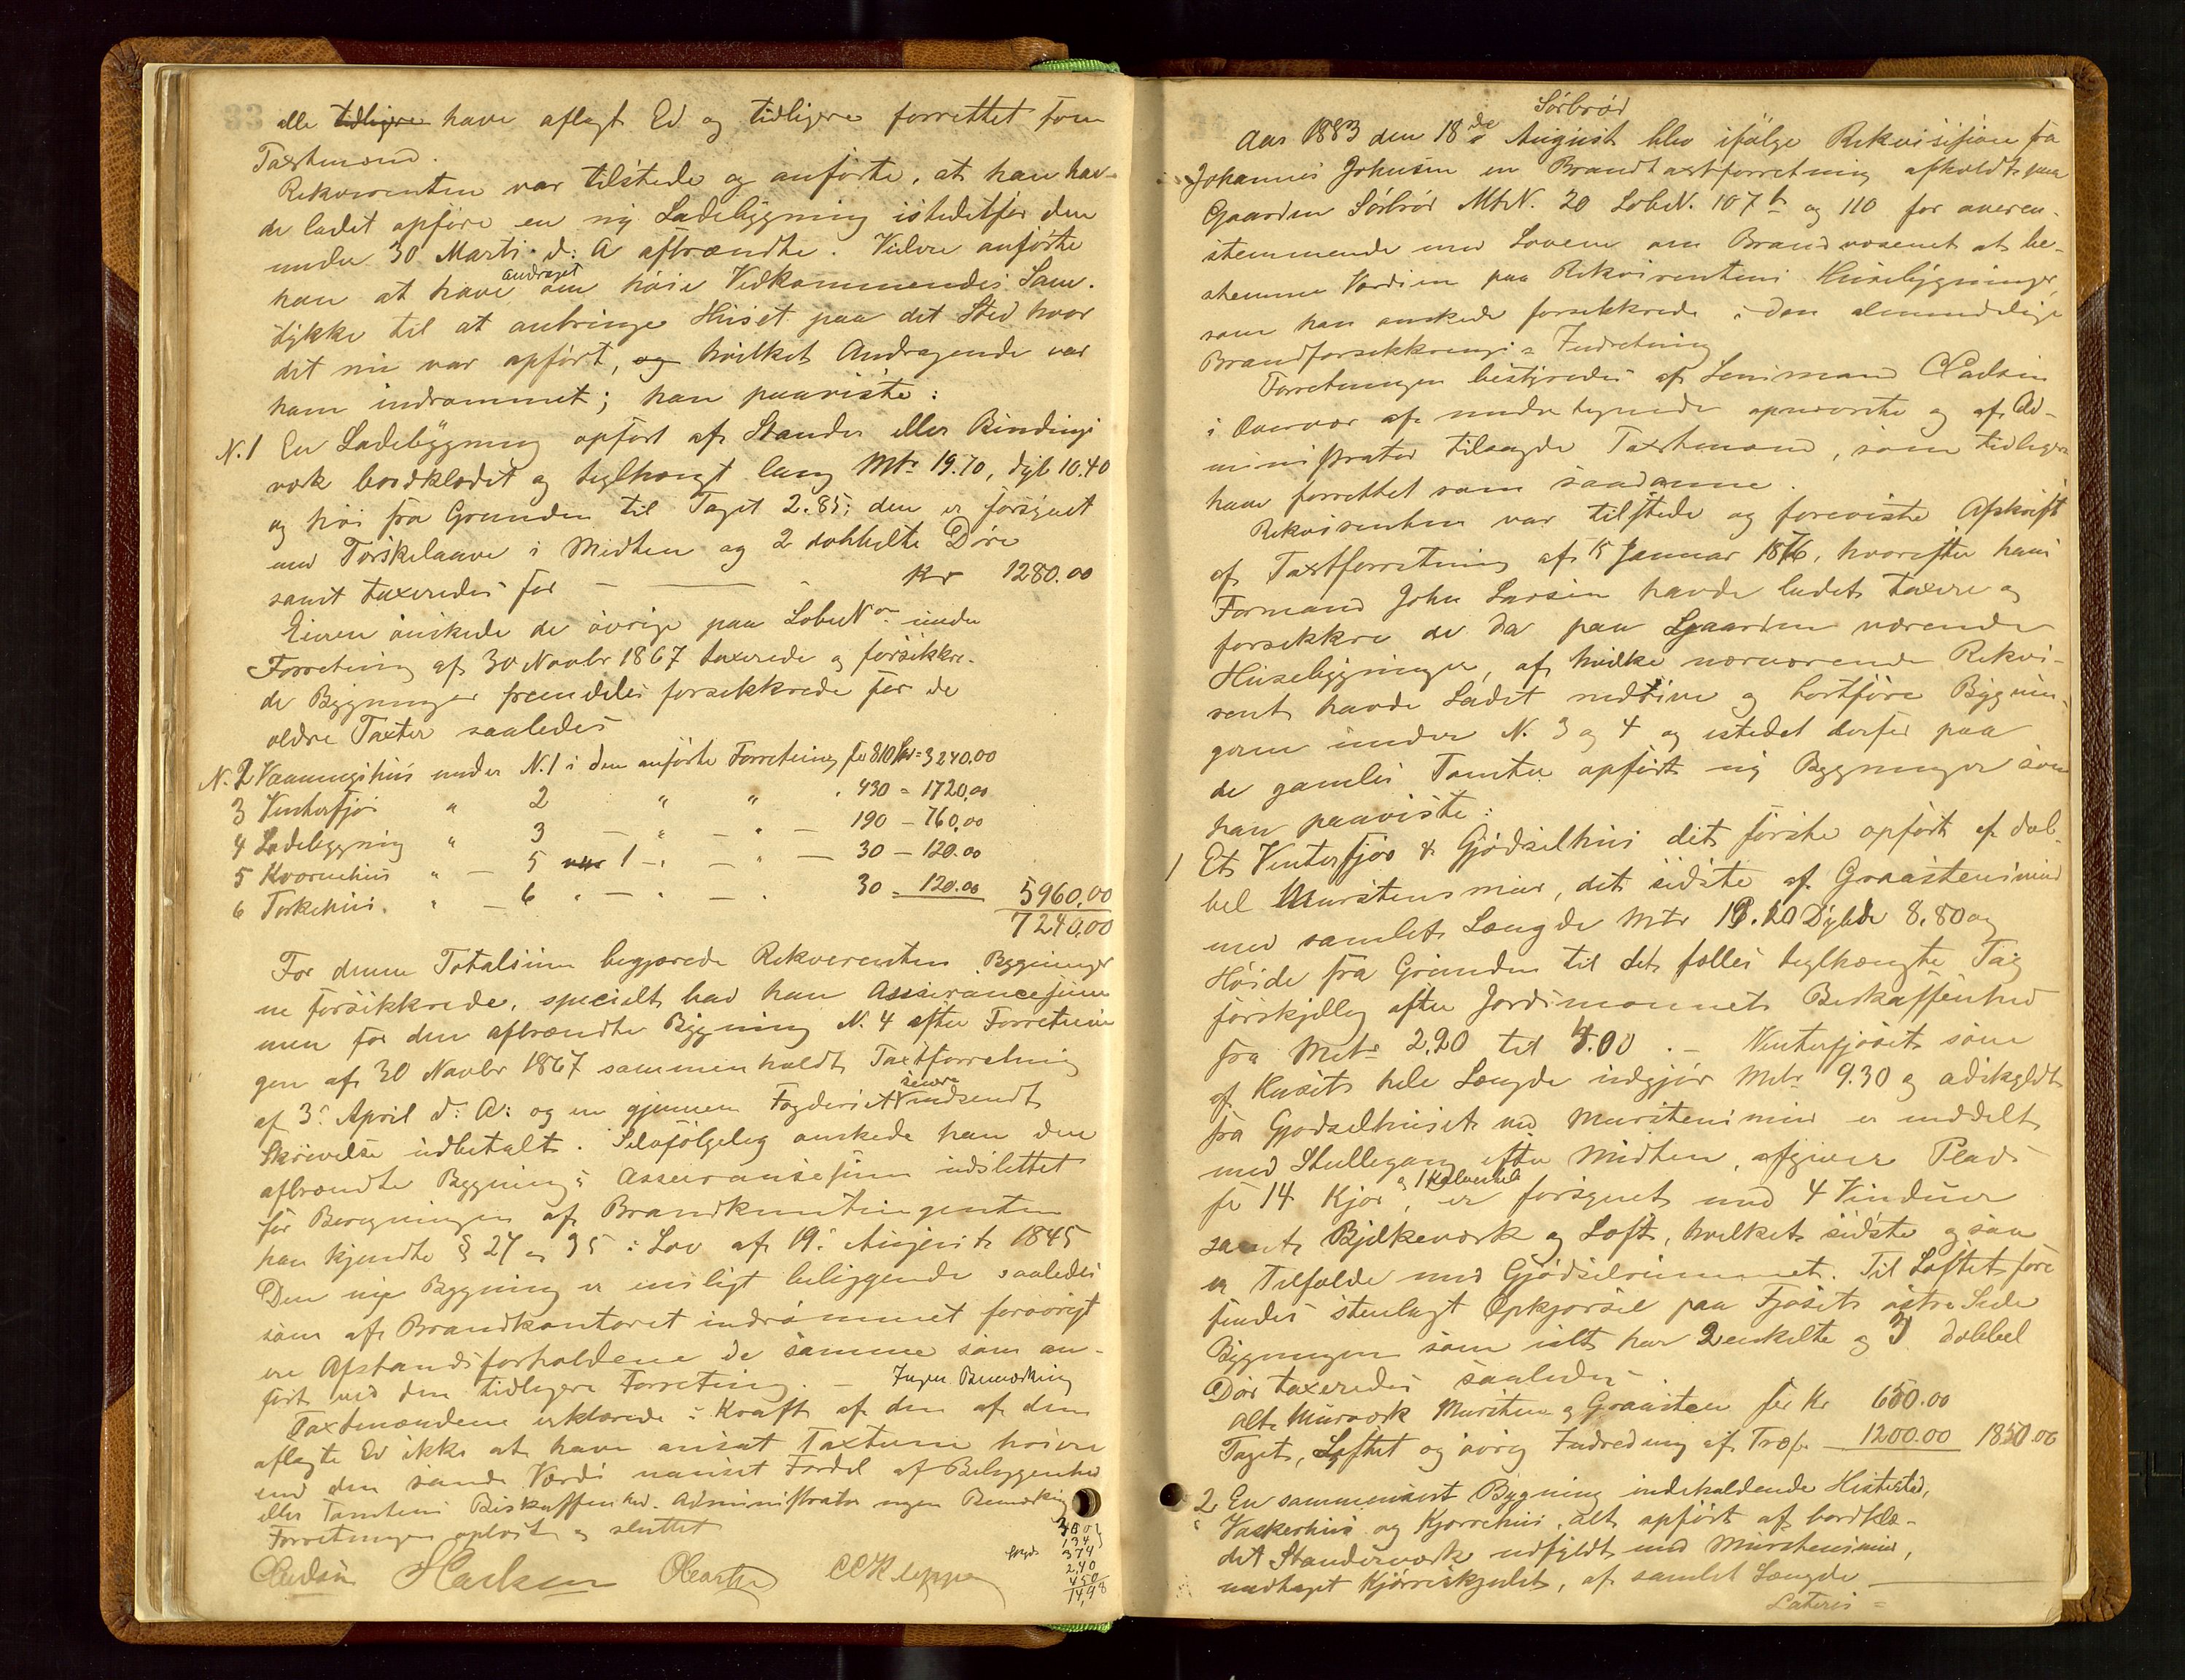 alle tidligere have aflagt Ed og tidligere forrettet som
Taxtmænd.
Rekvirenten var tilstede og anførte, at han hav-
de ladet opføre en ny Ladebygning istedetfor den
under 30 Marts d: A afbrændte. Videre anførte
han at have andraget om høie Vedkommendes Sam-
tykke til at anbringe Huset paa det Sted hvor
det nu var opført, og hvilket Andragende var
ham indrømmet; han paaviste:
N.1 En Ladebygning opført af Stander eller Bindings
værk bordklædet og teglhængt lang Mtr 19.70, dyb 10.40
og høi fra Grunden til Taget 2.85; den er forsynet
med Tørskelaave i Midten og 2 dobbelte Døre
samt taxeredes for — Kr 1280.00
Eieren ønskede de øvrige paa LøbeNor under
Forretning af 30 Novbr 1867 taxerede og forsikkre-
de Bygninger fremdeles forsikkrede for de
ældre Taxter saaledes
N. 2 Vaaningshus under N.1 i den anførte Forretning for 810 = 3240.00
3 Vinterfjøs " 2 " " 430 = 1720.00
4 Ladebygning " 3 — " — " — 190 — 760.00
5 Kværnehus " — 5 1 — " — " — 30 — 120.00
6 Tørkehus " — 6 " — " — " 30 = 120.00 5960.00
7240.00
For denne Totalsum begjærede Rekvirenten Bygninger
ne forsikkrede, specielt bad han Assurancesum
men for den afbrændte Bygning N. 4 efter Forretnin
gen af 30 Novbr 1867 sammenholdt Taxtforretning
af 3' April d: A: og en gjennem Fogderiet senere indsendt
Skrivelse udbetalt. Selvfølgelig ønskede han den
afbrændte Bygnings Assurancesum udslettet
før Beregningen af Brandkontingenten
han kjendte § 27 og 35 i Lov af 19' August 1845
Den nye Bygning er ensligt beliggende saaledes
som af Brandkontoret indrømmet forøvrigt
ere Afstandsforholdene de samme som an-
ført ved den tidligere Forretning. — Ingen Bemærkning
Taxtmændene erklærede i Kraft af den af dem
aflagte Ed ikke at have ansat Taxterne høiere
end den sande Værdi uanset Fordel af Beliggenhed
eller Tomtens Beskaffenhed. Administrator ingen Bemærkning
Forretningen oplæst og sluttet
374
2.40
450
14,98
Sørbrød
Aar 1883 den 18de August blev ifølge Rekvisision fra
Johannes Johnsen en Brandtaxtforretning afholdt paa
Gaarden Sørbrød MtrN. 20 LøbeN. 107b og 110 for overen-
stemmende med Loven om Brandvæsenet at be-
stemme Værdien paa Rekvirentens Husebygninger,
som han ønskede forsikkrede i den almindelige
Brandforsikkrings Indretning
Forretningen bestyredes af Lensmand
i Overvær af undertegnede opnævnte og af Ad-
ministrator tilsagde Taxtmænd, som tidligere
have forrettet som saadanne.
Rekvirenten var tilstede og foreviste Afskrift
af Taxtforretning af 15 Januar 1876, hvorefter hans
Formand John Larsen havde ladet taxere og
forsikkre de da paa Gaarden værende
Husebygninger, af hvilke nærværende Rekvi-
rent havde ladet nedrive og bortføre Bygnin-
gerne under N. 3 og 4 og istedet derfor paa
de gamle Tomter opført ny Bygninger som
han paaviste:
1 Et Vinterfjøs & Gjødselhus det første opført af dob-
bel Murstensmur, det sidste af Graastensmur
med samlet Længde Mtr 18.20 Dybde 8.80 og
Høide fra Grunden til det fælles teglhængte Tag
forskjellig efter Jordsmonnets Beskaffenhed
fra Mtr 2.20 til 4.00. — Vinterfjøset som
af Husets hele Længde udgjør Mtr 9.30 og adskildt
fra Gjødselhuset ved Murstensmur er inddelt
med Stullegang efter Midten, afgiver Plads
for 14 Kjør, og 1 Kalvestal er forsynet med 4 Vinduer
samt Bjelkeværk og Loft, hvilket sidste ogsaa
er Tilfælde med Gjødselrummet. Til Loftet fore
findes stenlagt Opkjørsel paa Fjøsets østre Side
Bygningen som ialt har 2 enkelte og 3 dobbel
Dør taxeredes saaledes
Alt Murværk Mursten og Graasten for Kr 650.00
Taget, Loftet og øvrig Indredning af Træ for — 1200.00 1850.00
2 En sammensat Bygning indeholdende Hestestal,
Vaskerhus og Kjørrehus, alt opført af bordklæ-
det Standerværk udfyldt med Murstensmur,
undtaget Kjørreskjulet, af samlet Længde
Lateris =